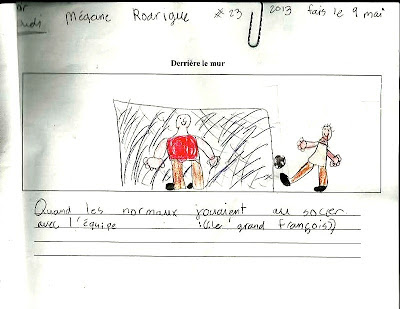 Mégane Rodrigue #23 2013 fais le 9 mai
Derrière le mur
Quand les normaux jouaient au soccer
avec l'équipe :((le grand François))